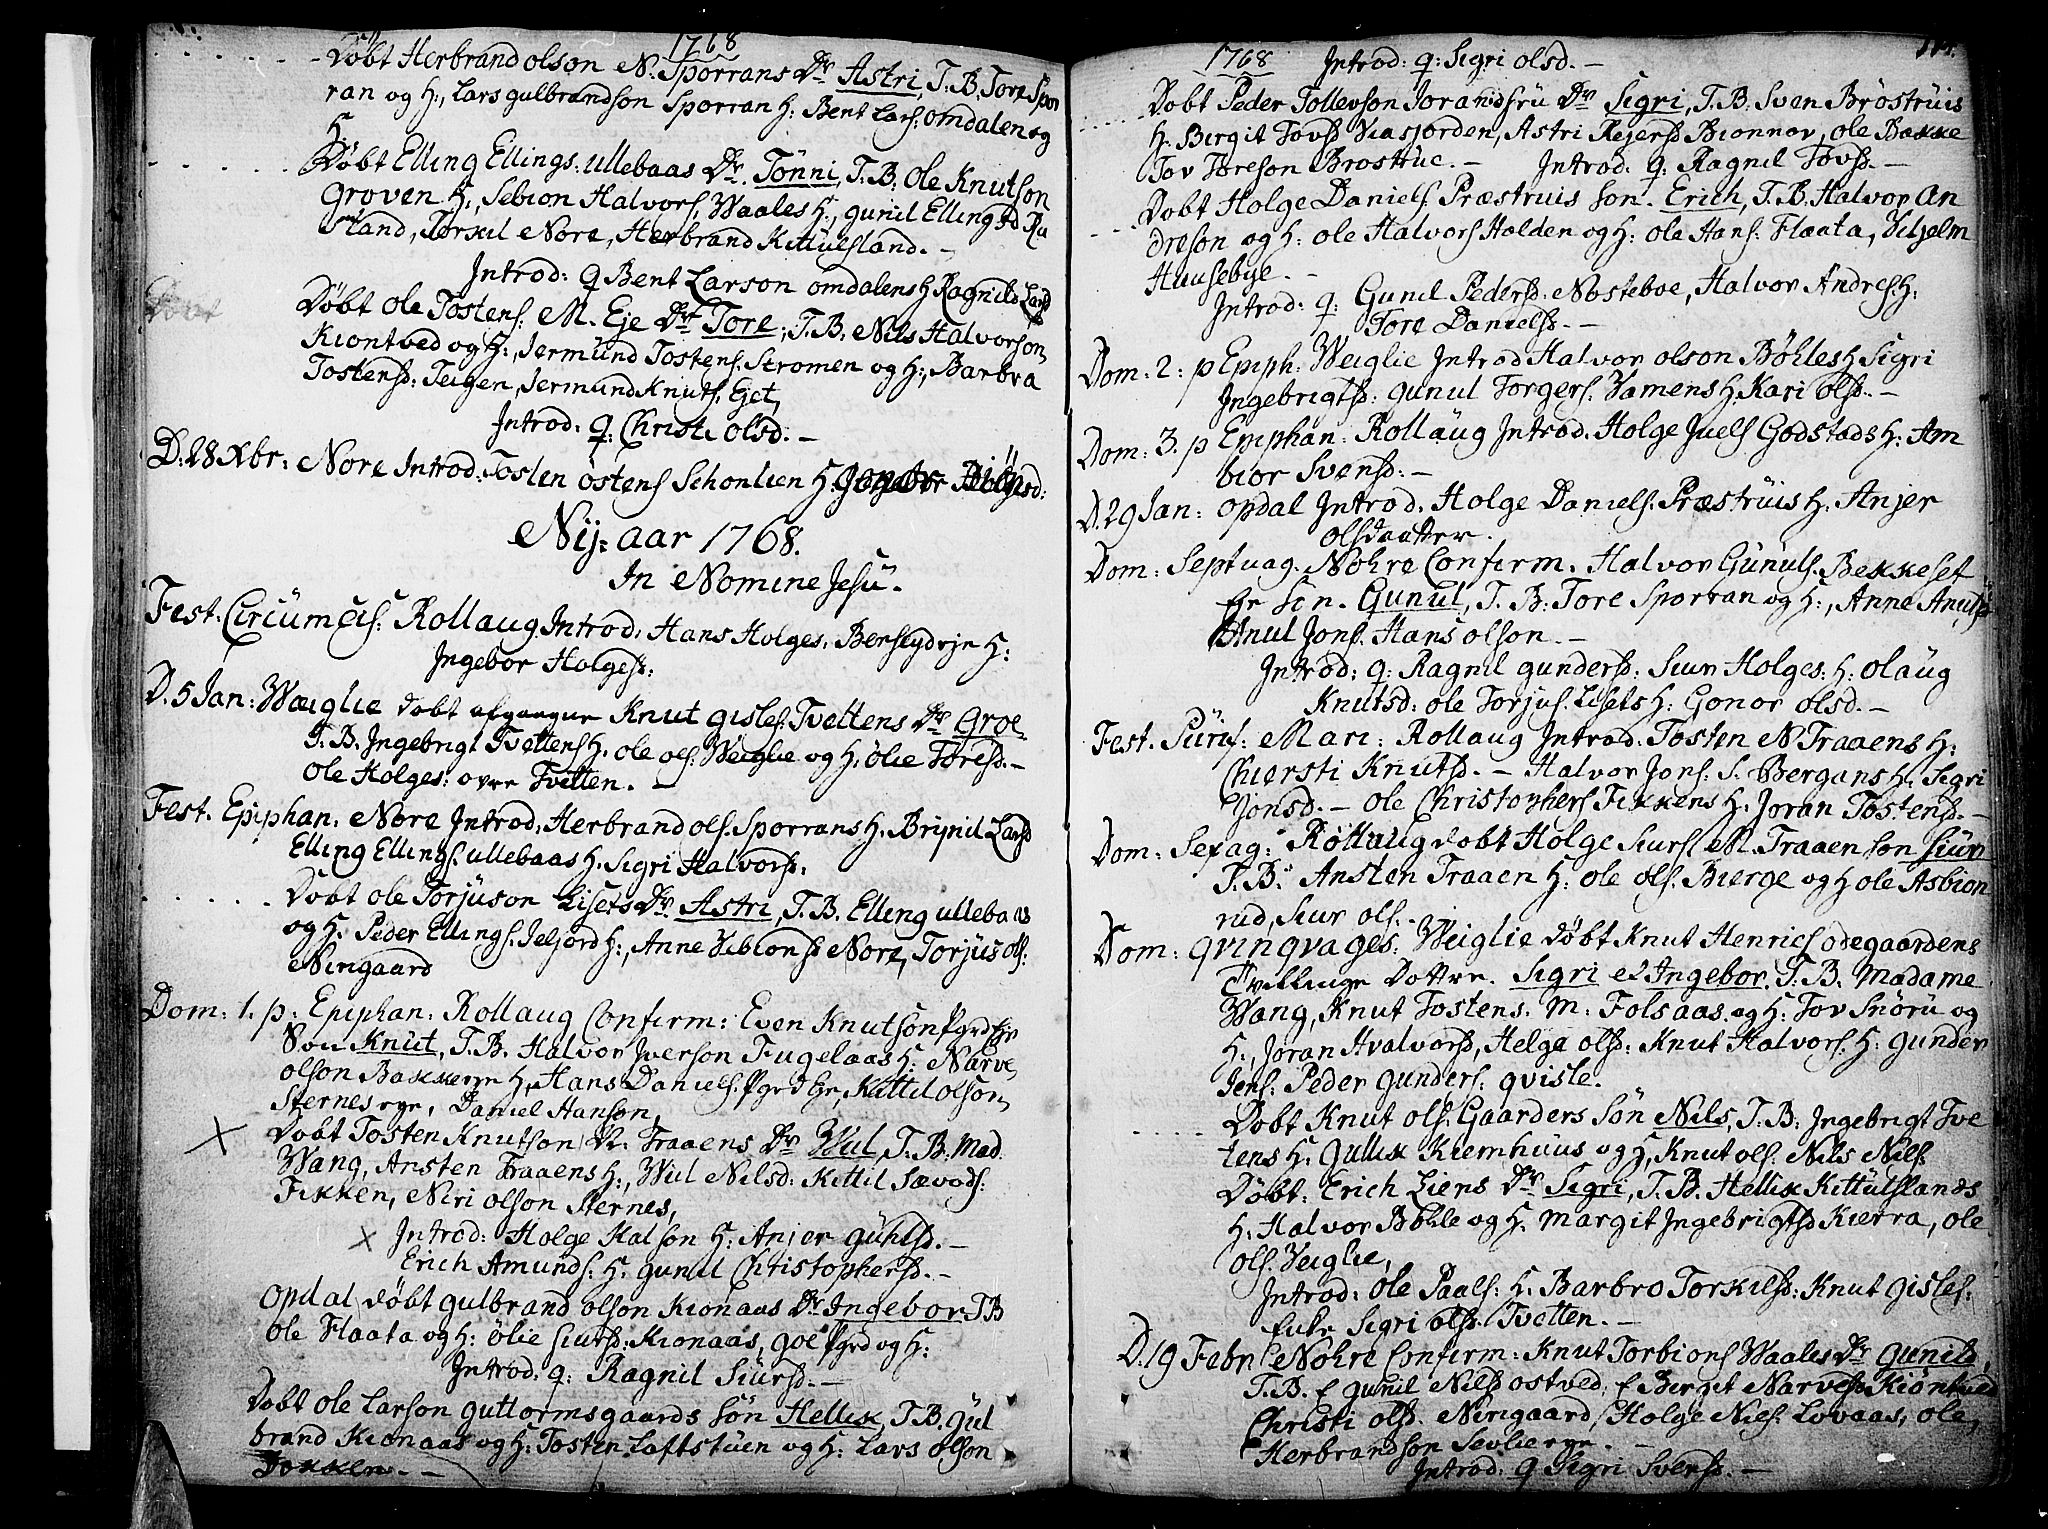 1768
Døbt Herbrand olson N. Sporrans Dr Astri, T.B. Tore Spor
ran og H:, Lars gulbrandson Sporran H: Bent Lars: omdalen og
H.
Døbt Elling Ellings: ullebaas Dr. Tönni, T.B: Ole Knutson
Groven H., Sebion Halvors. Waales H:, gunil Ellingsd Ru
stand, Torkil Nore, Herbrand Kittulsland. -
Introd: q Bent Larson omdalens H Ragnild Larsd
Døbt ole Tostens: M. Eje Dr Tore, T.B. Nils Halvorson
Kiontved og H:, Jermund Tostens. Stromen og H:, Barbra
Tostensd: Teigen, Jermund Knuts. Ejet,
Introd: q: Christi olsd. -
D: 28 Xbr: Nore Introd: Tosten östens Schonlien H.
Nÿ-aar 1768.
In Nomine Jesu.
Fest. Circumcis: Rollaug Introd: Hans Holges.
H:
Ingebor Holgesd:
D. 5 Jan: Wæiglie døbt afgangne Knut gisles. Tvettens Dr Groe
T.B. Ingebrigt Tvettens H. ole ols. Weiglie og H. ölie Toresd. -
Ole Holges: ovre Tvetten. -
Fest. Epiphan. Nore Introd. Herbrand ols. Sporrans H. Brynil Larsd
Elling Ellings. ullebaas H. Sigri Halvorsd.
Døbt ole Torjuson Lisets Dr. Astri, T.B. Elling ullebaas
og H. Peder Ellings. H:, Anne Sebionsd Nore, Torjus ols:
Nirigaard
Dom: 1. p: Epiphan: Rollaug Confirm: Even Knutson Pgrd Eje
Son Knut, T.B. Halvor Iverson Fugelaas H: Narve
olson Bakkerne H, Hans Daniels. Pgrd Eje, Kittil olson
Sternes eye, Daniel Hanson,
Døbt Tosten Knutson N. Traaens Dr Wul, T.B. Mad.
Wang, Ansten Traaens H:, Wul Nilsd: Kittil Sævods:
Fikken, Niri olson Sternes,
Introd: Holge Halson H: Anjer gunlsd. -
Erich Amunds: H. gunil Christophersd. -
Opdal døbt gulbrand olson Kionaas Dr Ingebor T.B
ole Flaata og H: ölie Siursd: Kionaas, goe Pgrd og H:
Introd: q: Ragnil Siursd. -
Døbt ole Larson guttormsgaards søn Hellik, T.B. gul
brand Kionaas og H: Tosten Loftstuen og H: Lars olson
Bakken. -
1768 Introd: q: Sigri olsd. -
Døbt Peder Tollevson Jorandsru Dr Sigri, T.B. Sven Bröstruis
H. Birgit Tovsd Vasjorden, Astri Reiersd Bionnov, ole Bakke
Tov Toreson Brostrue. - Introd: q: Ragnil Tovsd. -
Døbt Holge Daniels. Præstruis son. Erich, T.B. Halvor An
dreson og H: ole Halvors Halden og H: ole Hans: Flaata, Vilhelm
Huusebye. -
Introd: q: Gunil Pedersd. Nosteboe, Halvor Andres H:
Tore Danielsd. -
Dom: 2: p Epiph: Weiglie Introd Halvor olson Böhles H Sigri
Ingebrigtsd: gunul Torgers. Vamens H. Kari olsd. -
Dom: 3. p Epiphan: Rollaug Introd. Holge Juels Godstads H: Am
bior Svensd: -
D. 29 Jan: Opdal Introd. Holge Daniels. Præstruis H. Anjer
olsdaatter.
Dom: Septuag. Nohre Confirm. Halvor Gunuls. Bekkeset
Eje son. Gunul, T.B: Tore Sporran og H:, Anne Knutsd
Knut Jons. Hans olson. -
Introd: q: Ragnil gundersd: Siur Holges: H: olaug
Knutsd: ole Torjus. Lisets H: Gonor olsd. -
Fest. Purif: Mari: Rollaug Introd. Tosten N Traaens H:
Chiersti Knutsd. - Halvor Jons: S: Bergans H. Sigri
Jonsd. - ole Christophers Fikkens H. Joran Tostensd. -
Dom: Sexag: Rollaug døbt Holge Siurs M. Traaen son Siur
T.B: Ansten Traaen H: ole ols. Bierge og H ole Asbion
rud, Siur ols. -
Dom: qvinqvages: Weiglie døbt Knut Henrics odegaardens
Tvillinge Dottre. Sigri et Ingebor. T.B. Madame
Wang, Knut Tostens. M: Folsaas og H: Tov Snöru og
H:, Joran Hvalvorsd, Helge olsd: Knut Halvors. H: gunder
Jens: Peder gunders: qvisle.
Døbt Knut ols. Gaarders søn Nils, T.B: Ingebrigt Tve
tens H. gullik Kiemhuus og H, Knut ols. Nils Nils.
Døbt: Erich Liens Dr Sigri, T.B. Hellik Kittulslands
H. Halvor Böhle og H. Margit Ingebrigtsd Kierra, ole
ols. Veiglie,
Introd: ole Paals: H. Barbro Torkilsd: Knut gisles:
Enke Sigri olsd. Tvetten. -
D. 19 Febr Nohre Confirm: Knut Torbions Waales Dr Gunild,
T.B. f gunil Nilsd ostved, f Birgit Narvesd Kiöntved
Christi olsd. Nirigaard, Holge Nils. Lovaas, ole
Herbrandson Sevlerye. -
Introd: q Sigri Svensd. -